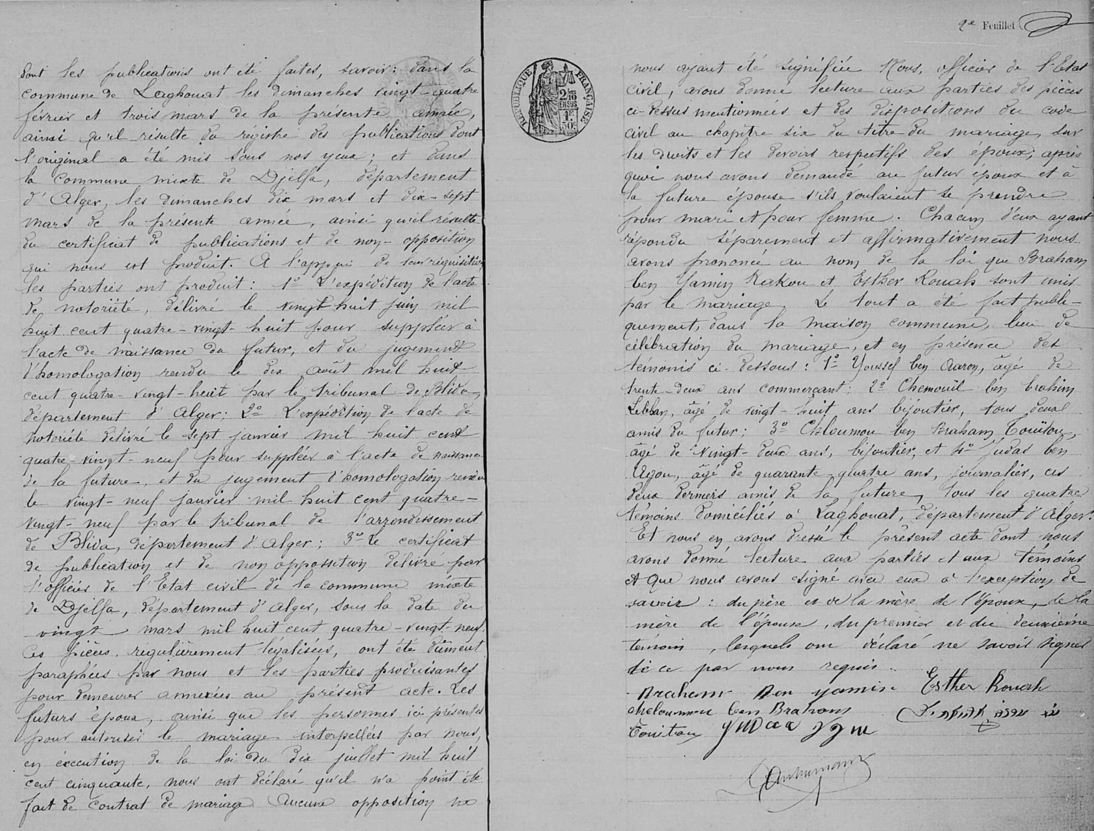 dont les publications ont été faites, savoir: dans la
commune de Laghouat les dimanches vingt-quatre
février et trois mars de la présente année,
ainsi qu'il résulte du registre des publications dont
l'original a été mis sous nos yeux; et dans
la commune mixte de Djelfa, département
d'Alger, les dimanches dix mars et dix-sept
mars de la présente année, ainsi qu'il résulte
du certificat de publications et de non-opposition
qui nous est produit. A l'appui de leur réquisition
les parties ont produit: 1° L'expédition de l'acte
de notoriété, délivré le vingt huit juin mil
huit cent quatre-vingt-huit pour suppléer à
l'acte de naissance du futur, et du jugement
d'homologation rendu le dix août mil huit
cent quatre-vingt-huit par le tribunal de Blida,
département d'Alger; 2° L'expédition de l'acte de
notoriété délivré le sept janvier mil huit cent
quatre vingt-neuf pour suppléer à l'acte de naissance
de la future, et du jugement d'homologation rendu
le vingt-neuf janvier mil huit cent quatre-
vingt-neuf par le tribunal de l'arrondissement
de Blida, département d'Alger; 3° Le certificat
de publication et de non opposition délivré par
l'officier de l'Etat civil de la commune mixte
de Djelfa, département d'Alger, sous la date du
vingt mars mil huit cent quatre-vingt-neuf.
Ces pièces, régulièrement légalisées, ont été dûment
paraphées par nous et les parties produisantes
pour demeurer annexées au présent acte. Les
futurs époux, ainsi que les personnes ici présentes
pour autoriser le mariage interpellées par nous,
en exécution de la loi du dix juillet mil huit
cent cinquante, nous ont déclaré qu'il n'a point été
fait de contrat de mariage Aucune opposition ne
2e Feuillet
RÉPUBLIQUE FRANÇAISE
nous ayant été signifiée Nous, officier de l'Etat
civil, avons donné lecture aux parties des pièces
ci-dessus mentionnées et des dispositions du code
civil au chapitre six du titre du mariage, sur
les droits et les devoirs respectifs des époux; après
quoi nous avons demandé au futur époux et à
la future épouse s'ils voulaient se prendre
pour mari et pour femme. Chacun d'eux ayant
répondu séparément et affirmativement nous
avons prononcé au nom de la loi que Braham
ben Yamin et Esther Rouah sont unis
par le mariage. Le tout a été fait publi-
quement, dans la maison commune, lieu de
célébration du mariage, et en présence des
témoins ci-dessous: 1° Youssef ben Aaron, âgé de
trente-deux ans commerçant; 2° Chemouil ben Brahim
âgé de vingt-huit ans bijoutier, tous deux
amis du futur; 3° Chloumou ben Braham Touitou,
âgé de vingt-deux ans, bijoutier, et 4° Judas ben
âgé de quarante quatre ans, journalier, ces
deux derniers amis de la future, tous les quatre
témoins domiciliés à Laghouat, département d'Alger.
Et nous en avons dressé le présent acte dont nous
avons donné lecture aux parties et aux témoins
et que nous avons signé avec eux à l'exception de
savoir: du père et de la mère de l'époux, de la
mère de l'épouse, du premier et du deuxième
témoin, lesquels ont déclaré ne savoir signer
de ce par nous requis.
Braham Ben yamin Esther Rouah
Cheloummou ben Braham
Touitou